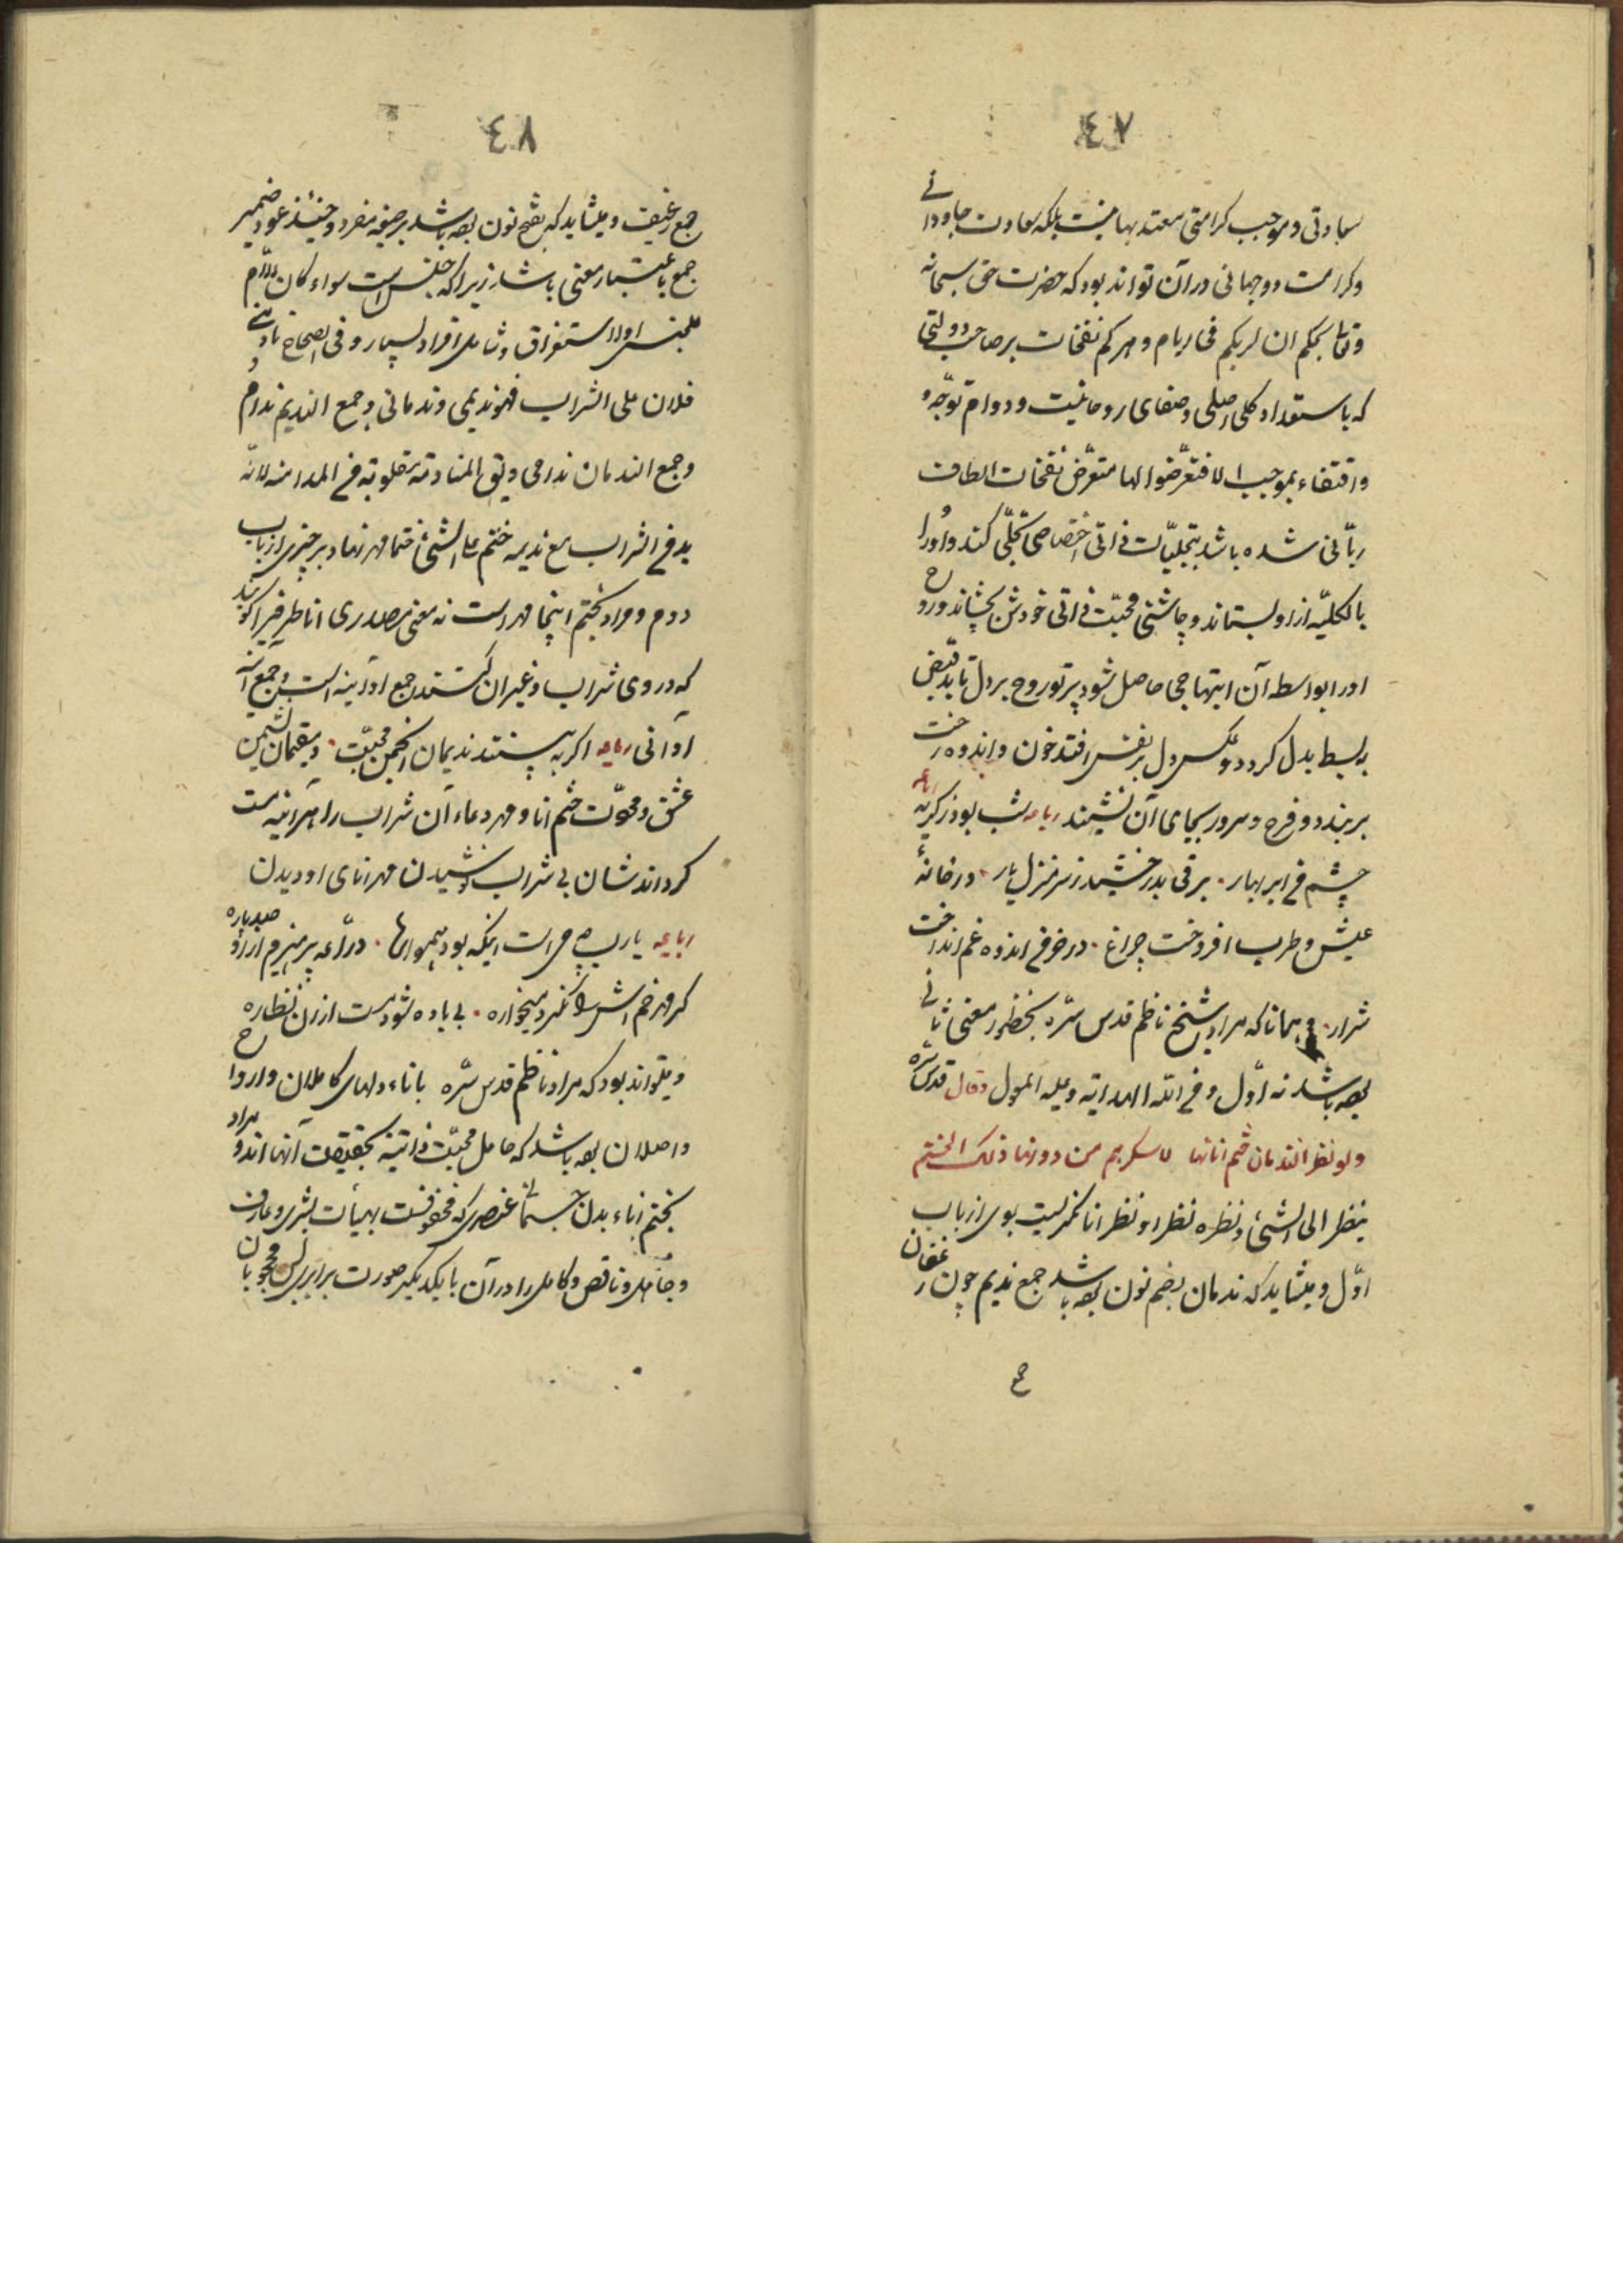 ٤٧
سعادتی و موجب کرامتی معتد بها نیست بلکه سعادت جاودانی
و کرامت دوجهانی در آن تواند بود که حضرت حق سبحانه
و تعالی بحکم ان لربکم فی ایام دهرکم نفحات بر صاحب دولتی
که باستعداد کلی اصلی و صفای روحانیت و دوام توجّه و
و اقتفاء بموجب الا فتعرّضوا لها متعرّض نفحات الطاف
ربّانی شده باشد بتجلیّات ذاتی اختصاصی تجلّی کند و اورا
بالکلیّه از او بستاند و چاشنی محبّت ذاتی خودش بچشاند و روح
اورا بواسطه آن ابتهاجی حاصل شود پرتو روح بر دل تابد قبض
به بسط بدل کردد و عکس دل بر نفس افتد خون و اندوه رخت
بربندد و فرح و سرور بجای آن نشیند رباعیه شب بود ز کریه
چشم من ابر بهار . برقی بدرخشید ز سر منزل یار . در خانهٔ
عیش و طرب افروخت چراغ . در خرمن اندوه غم انداخت
شرار . و همانا که مراد شیخ ناظم قدس سرّه بخطور معنی ثانی
بوده باشد نه اوّل و من اللّه الهدایة و علیه المعول وقال قدس سره
ولو نظر الندمان ختم انائها لاسکرهم من دونها ذلک الختم
ینظر الی الشیٔ و نظره نظرا و نظرانا نکرلیست بوی از باب
اوّل و میشاید که ندمان بضم نون بوده باشد جمع ندیم چون رغفان
جمع
٤٨
جمع رغیف و میشاید که بفتح نون بوده باشد بر صیغه مفرد و حینئذ عود ضمیر
جمع باعتبار معنی باشد زیرا که جنس است سواء کان اللّام
للجنس او للاستغراق و شامل افراد بسیار و فی الصحاح نادمنی
فلان علی الشراب فهو ندیمی و ندمانی و جمع الندیم ندام
و جمع الندمان ندامی و یق المنادمة مقلوبة من المدامنة لانّه
یدمن الشراب مع ندیمه ختم علی الشیٔ ختما مهر نهاد بر چیزی از باب
دوم و مراد بختم اینجا مهر است نه معنی مصدری انا ظرفیرا کویند
که در وی شراب و غیر آن کنند جمع او آنیه است و جمع آنیه
اوانی رباعیه اکر به بینند ندیمان انجمن محبّت . و مقیمان نشیمن
عشق و مودّت ختم انا و مهر دعاء آن شراب را هر آینه مست
کرداندشان بی شراب نوشیدن مهر انای او دیدن
رباعیه یارب چه می است اینکه بود همواره . درّاعه پرهیزم ازو صد پاره
کر مهر خم اش بنکرد میخواره . بی باده شود مست از آن نظاره
و میتواند بود که مراد ناظم قدس سرّه باناء دلهای کاملان و ارواح
واصلان بوده باشد که حامل محبّت ذاتیه بحقیقت آنها اند و مراد
بختم اناء بدن جسمانی عنصری که محفوفست بهیأت بشری و عارف
و جاهل و ناقص و کامل را در آن با یکدیکر صورت برابر پس محجوبان